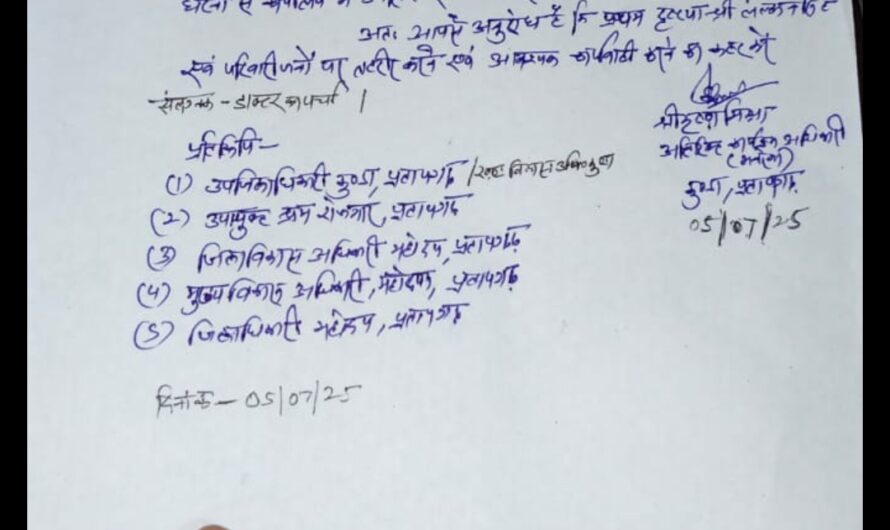 अतः आपसे अनुरोध है कि प्रथम दृष्टया श्री
एवं परिवारीजनों पर तहरीर करने एवं आवश्यक कार्यवाही करने का कष्ट करें
संलग्नक - डाक्टर का पर्चा ।
श्रीकृष्ण मिश्रा
अतिरिक्त कार्यक्रम अधिकारी
(मनरेगा)
कुण्डा, प्रतापगढ़
05/07/25
प्रतिलिपि -
(1) उपजिलाधिकारी कुण्डा, प्रतापगढ़ / खण्ड विकास अधि० कुण्डा
(2) उपायुक्त श्रम रोजगार, प्रतापगढ़
(3) जिला विकास अधिकारी महोदय, प्रतापगढ़
(4) मुख्य विकास अधिकारी, महोदय, प्रतापगढ़
(5) जिलाधिकारी महोदय, प्रतापगढ़
दिनांक - 05/07/25